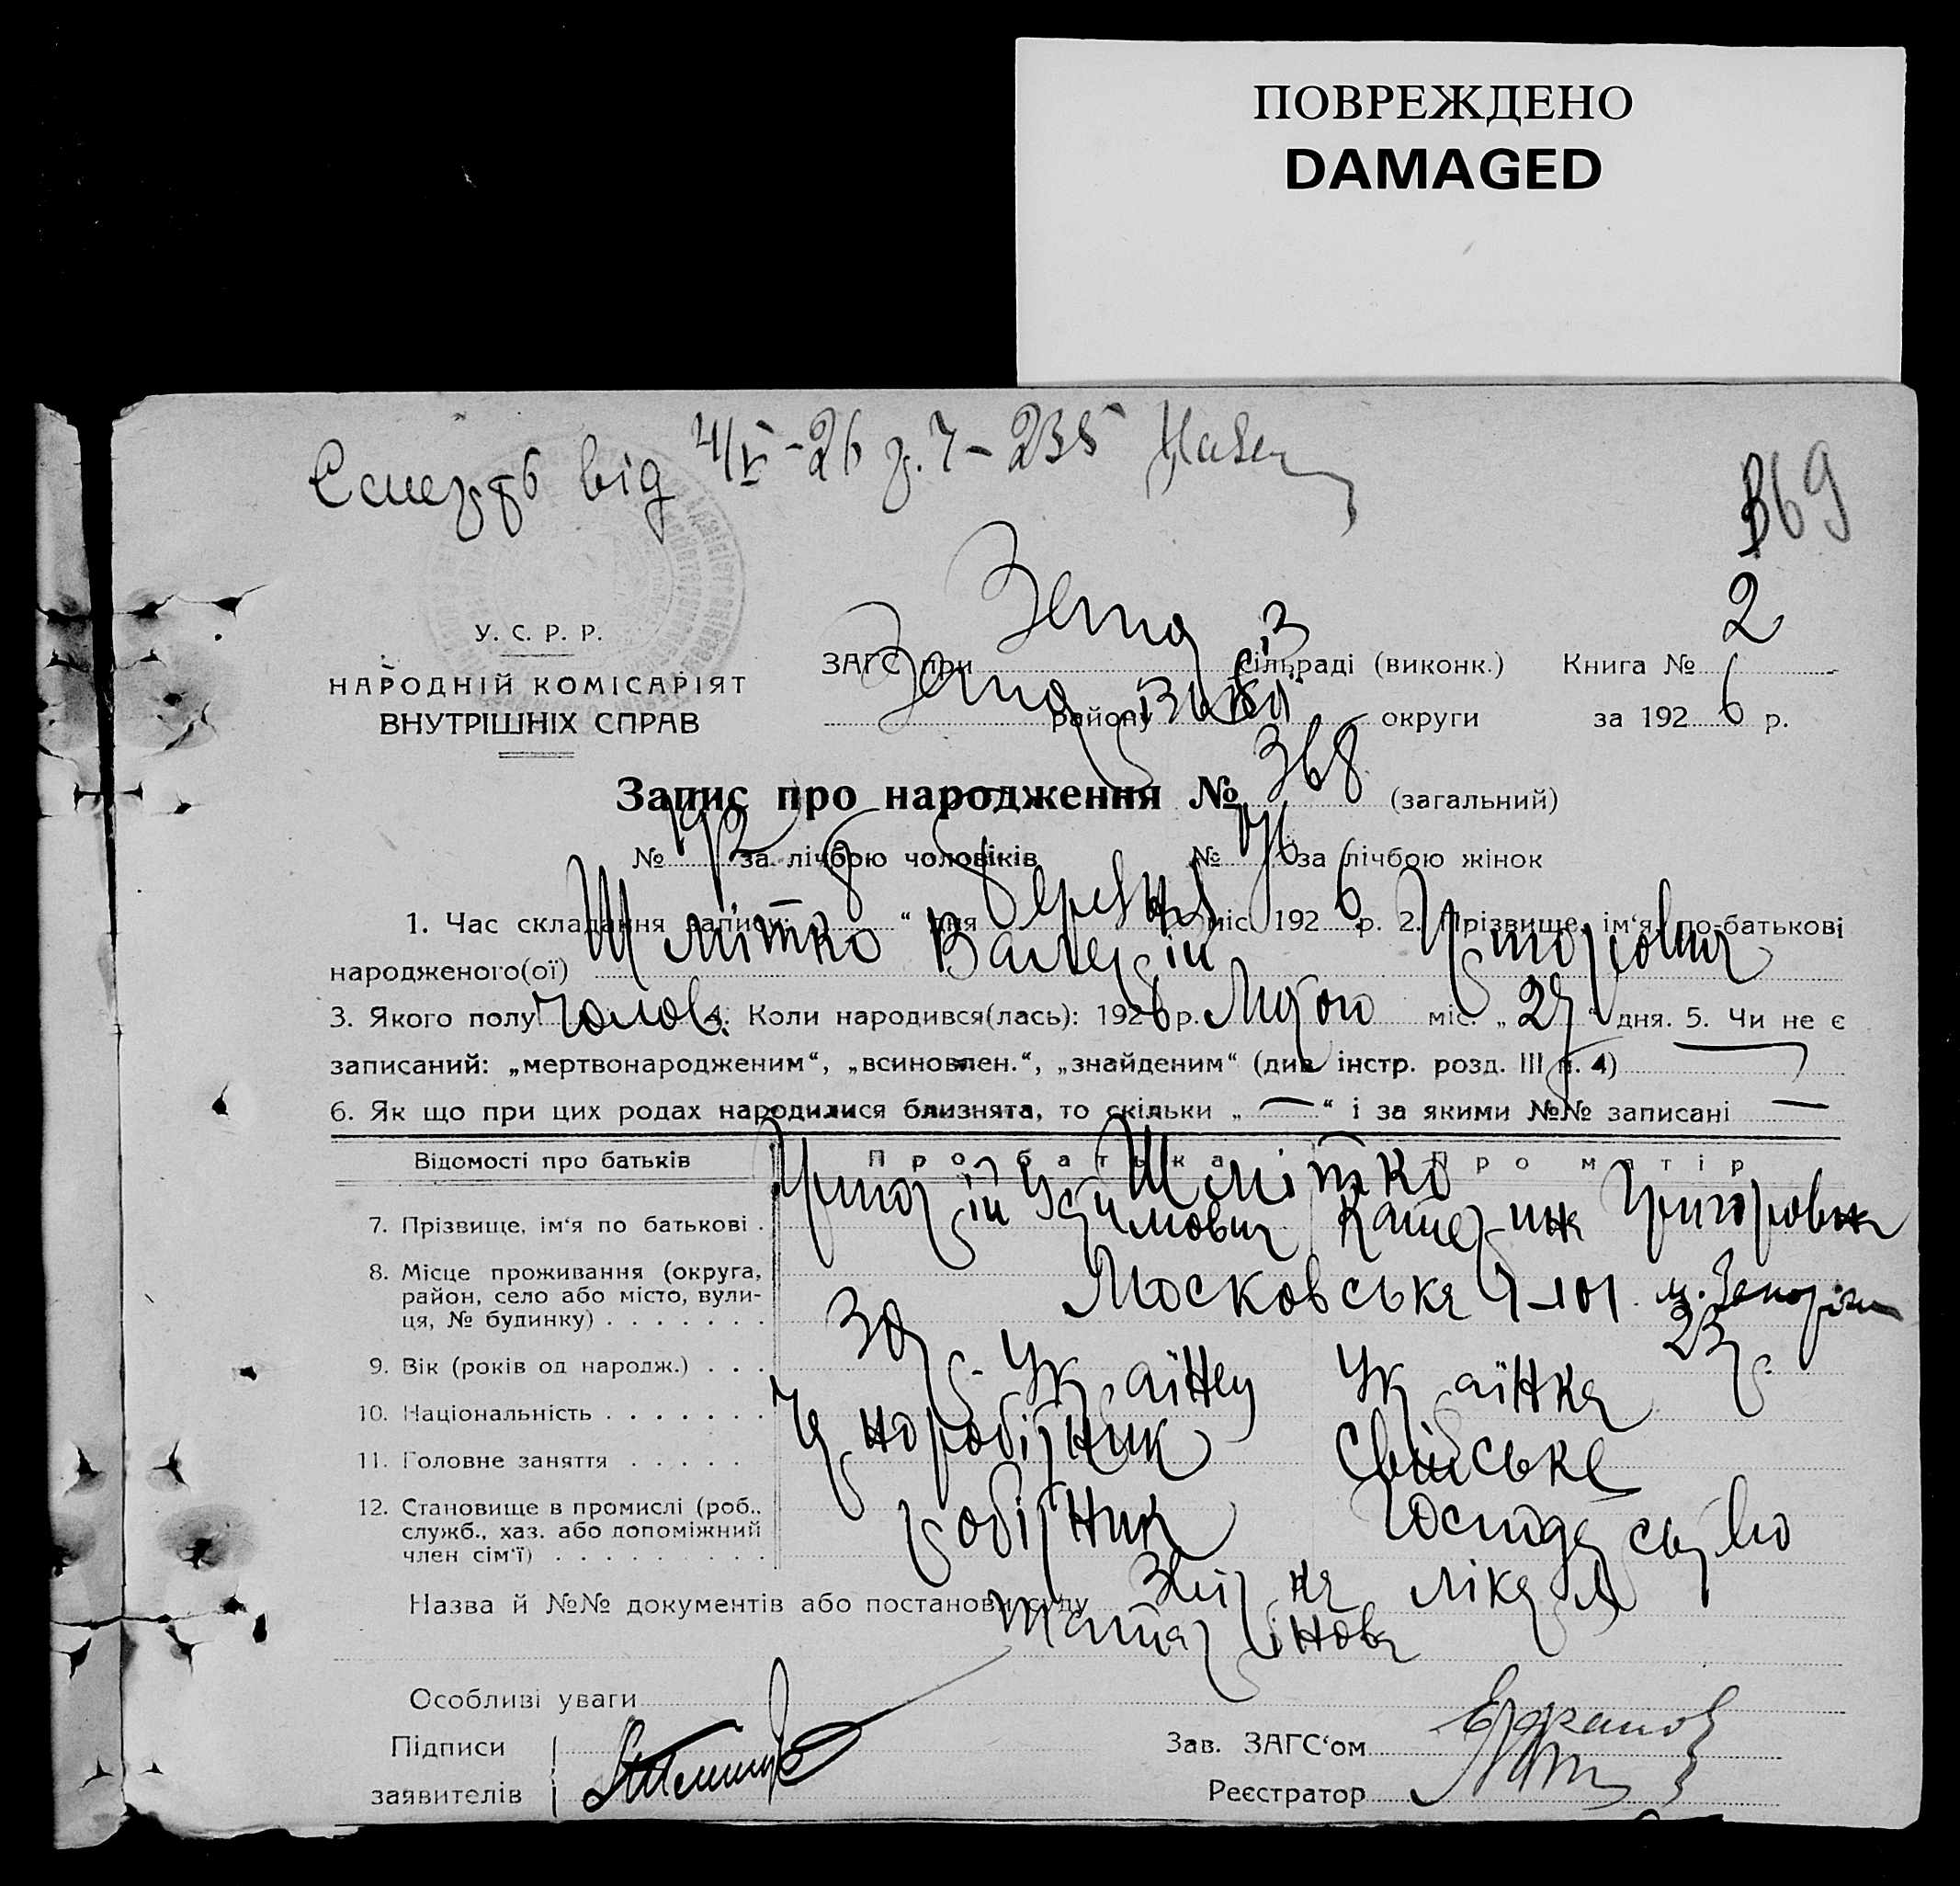 ПОВРЕЖДЕНО
DAMAGED
Є смерть від 4/V-26 р. Ч-235
369
У. С. Р. Р.
НАРОДНІЙ КОМІСАРІЯТ
ВНУТРІШНІХ СПРАВ
ЗАГС при сільраді (виконк.) Книга № 2
району округи за 1926 р.
Запис про народження № 368 (загальний)
№ 192 за лічбою чоловіків № 176 за лічбою жінок
1. Час складання запису: 8 “ дня березня міс. 1926 р. 2. Прізвище, ім‘я, по-батькові
народженого(ої) Шмітко Валерій Григорович
3. Якого полу: чолов. 4. Коли народився(лась): 1926 р. Лютого міс. „ 27 “ дня. 5. Чи не є
записаний: „мертвонародженим“, „всиновлен.“, „знайденим“ (див. інстр. розд. III п. 4) —
6. Як що при цих родах народилися близнята, то скільки „ — “ і за якими №№ записані —
Відомості про батьків Про батька Про матір
Шмітко
7. Прізвище, ім‘я по батькові . Григорій Юхимович Катерина Григоровна
8. Місце проживання (округа,
район, село або місто, вули-
ця, № будинку) . . . . . . . Московська 9-101 м. Запоріжжя
9. Вік (років од народж.) . . . 30 р. 23 р.
10. Національність . . . . . . . Українец Українка
11. Головне заняття . . . . . Чорноробітник Свійське
12. Становище в промислі (роб.,
служб., хаз. або допоміжний
член сім‘ї) . . . . . . . . . робітник господарство
Назва й №№ документів або постанови суду Довідка лікаря
Татарінова
Особливі уваги
Підписи
заявителів
Зав. ЗАГС‘ом
Реєстратор